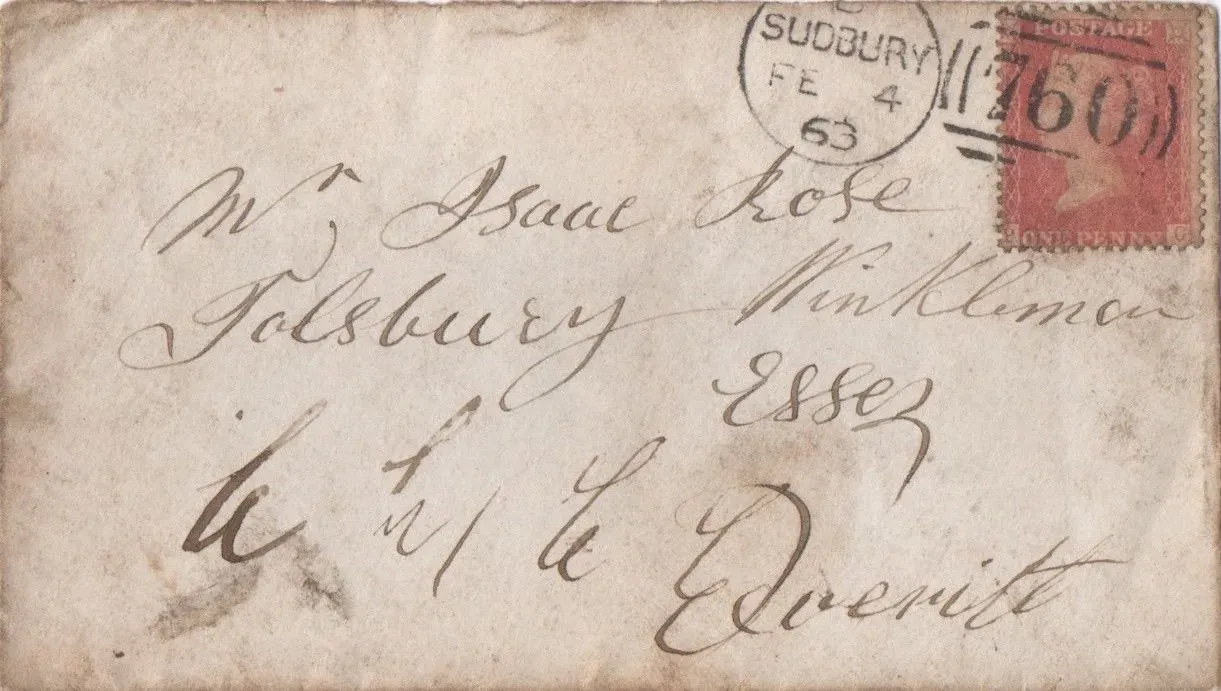 SUDBURY
FE 4
63
760
POSTAGE
ONE PENNY
Mr Isaac Rose
Tolsbury Winkleman
Essex